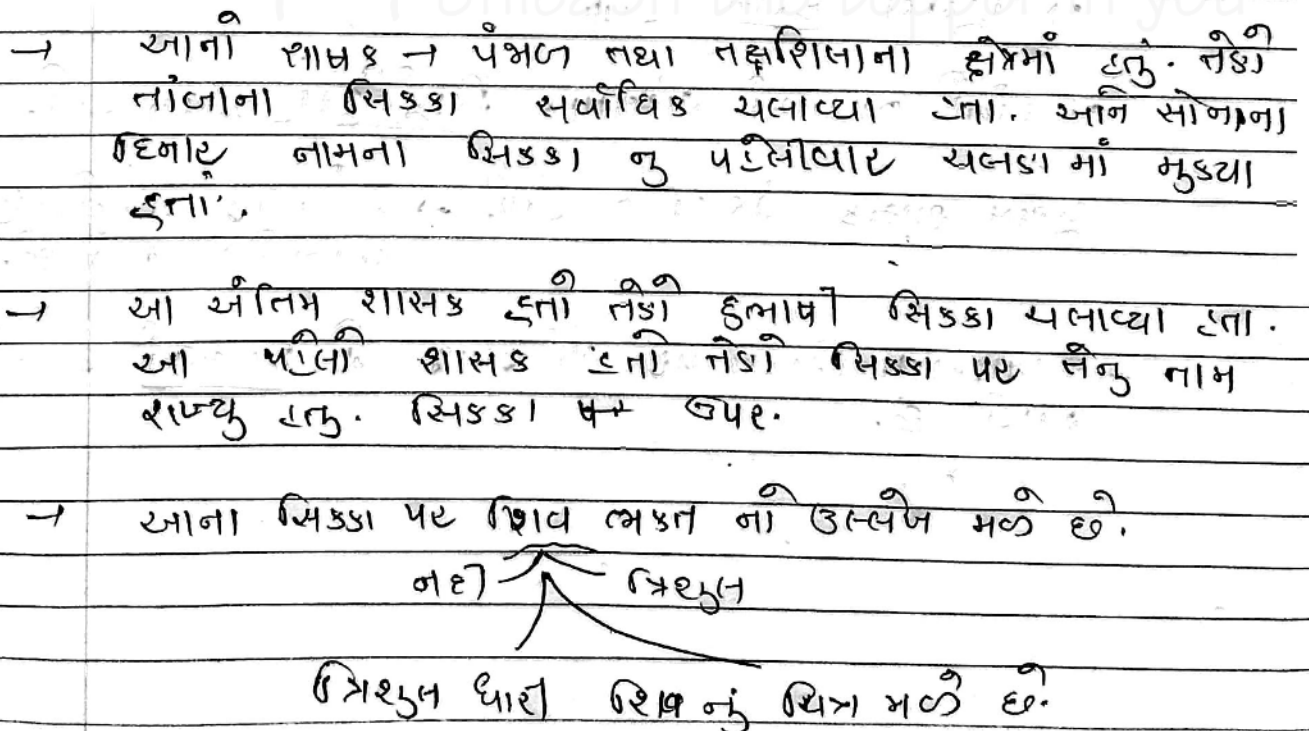 → આનો શાષક → પંજાબ તથા તક્ષશિલાના ક્ષેત્રમાં હતું. તેણે
તાંબાના સિક્કા સર્વાધિક ચલાવ્યા હતા. અને સોનાના
દિનાર નામના સિક્કા નુ પહેલીવાર ચલણ માં મુક્યા
હતા.
→ આ અંતિમ શાસક હતો તેણે દુભાષી સિક્કા ચલાવ્યા હતા.
આ પહેલો શાસક હતો તેણે સિક્કા પર તેનુ નામ
રાખ્યુ હતુ. સિક્કા ઉપર.
→ આના સિક્કા પર શિવ ભક્ત નો ઉલ્લેખ મળે છે.
નદી ત્રિશુલ
ત્રિશુલ ધારી શિવ નું ચિત્ર મળે છે.